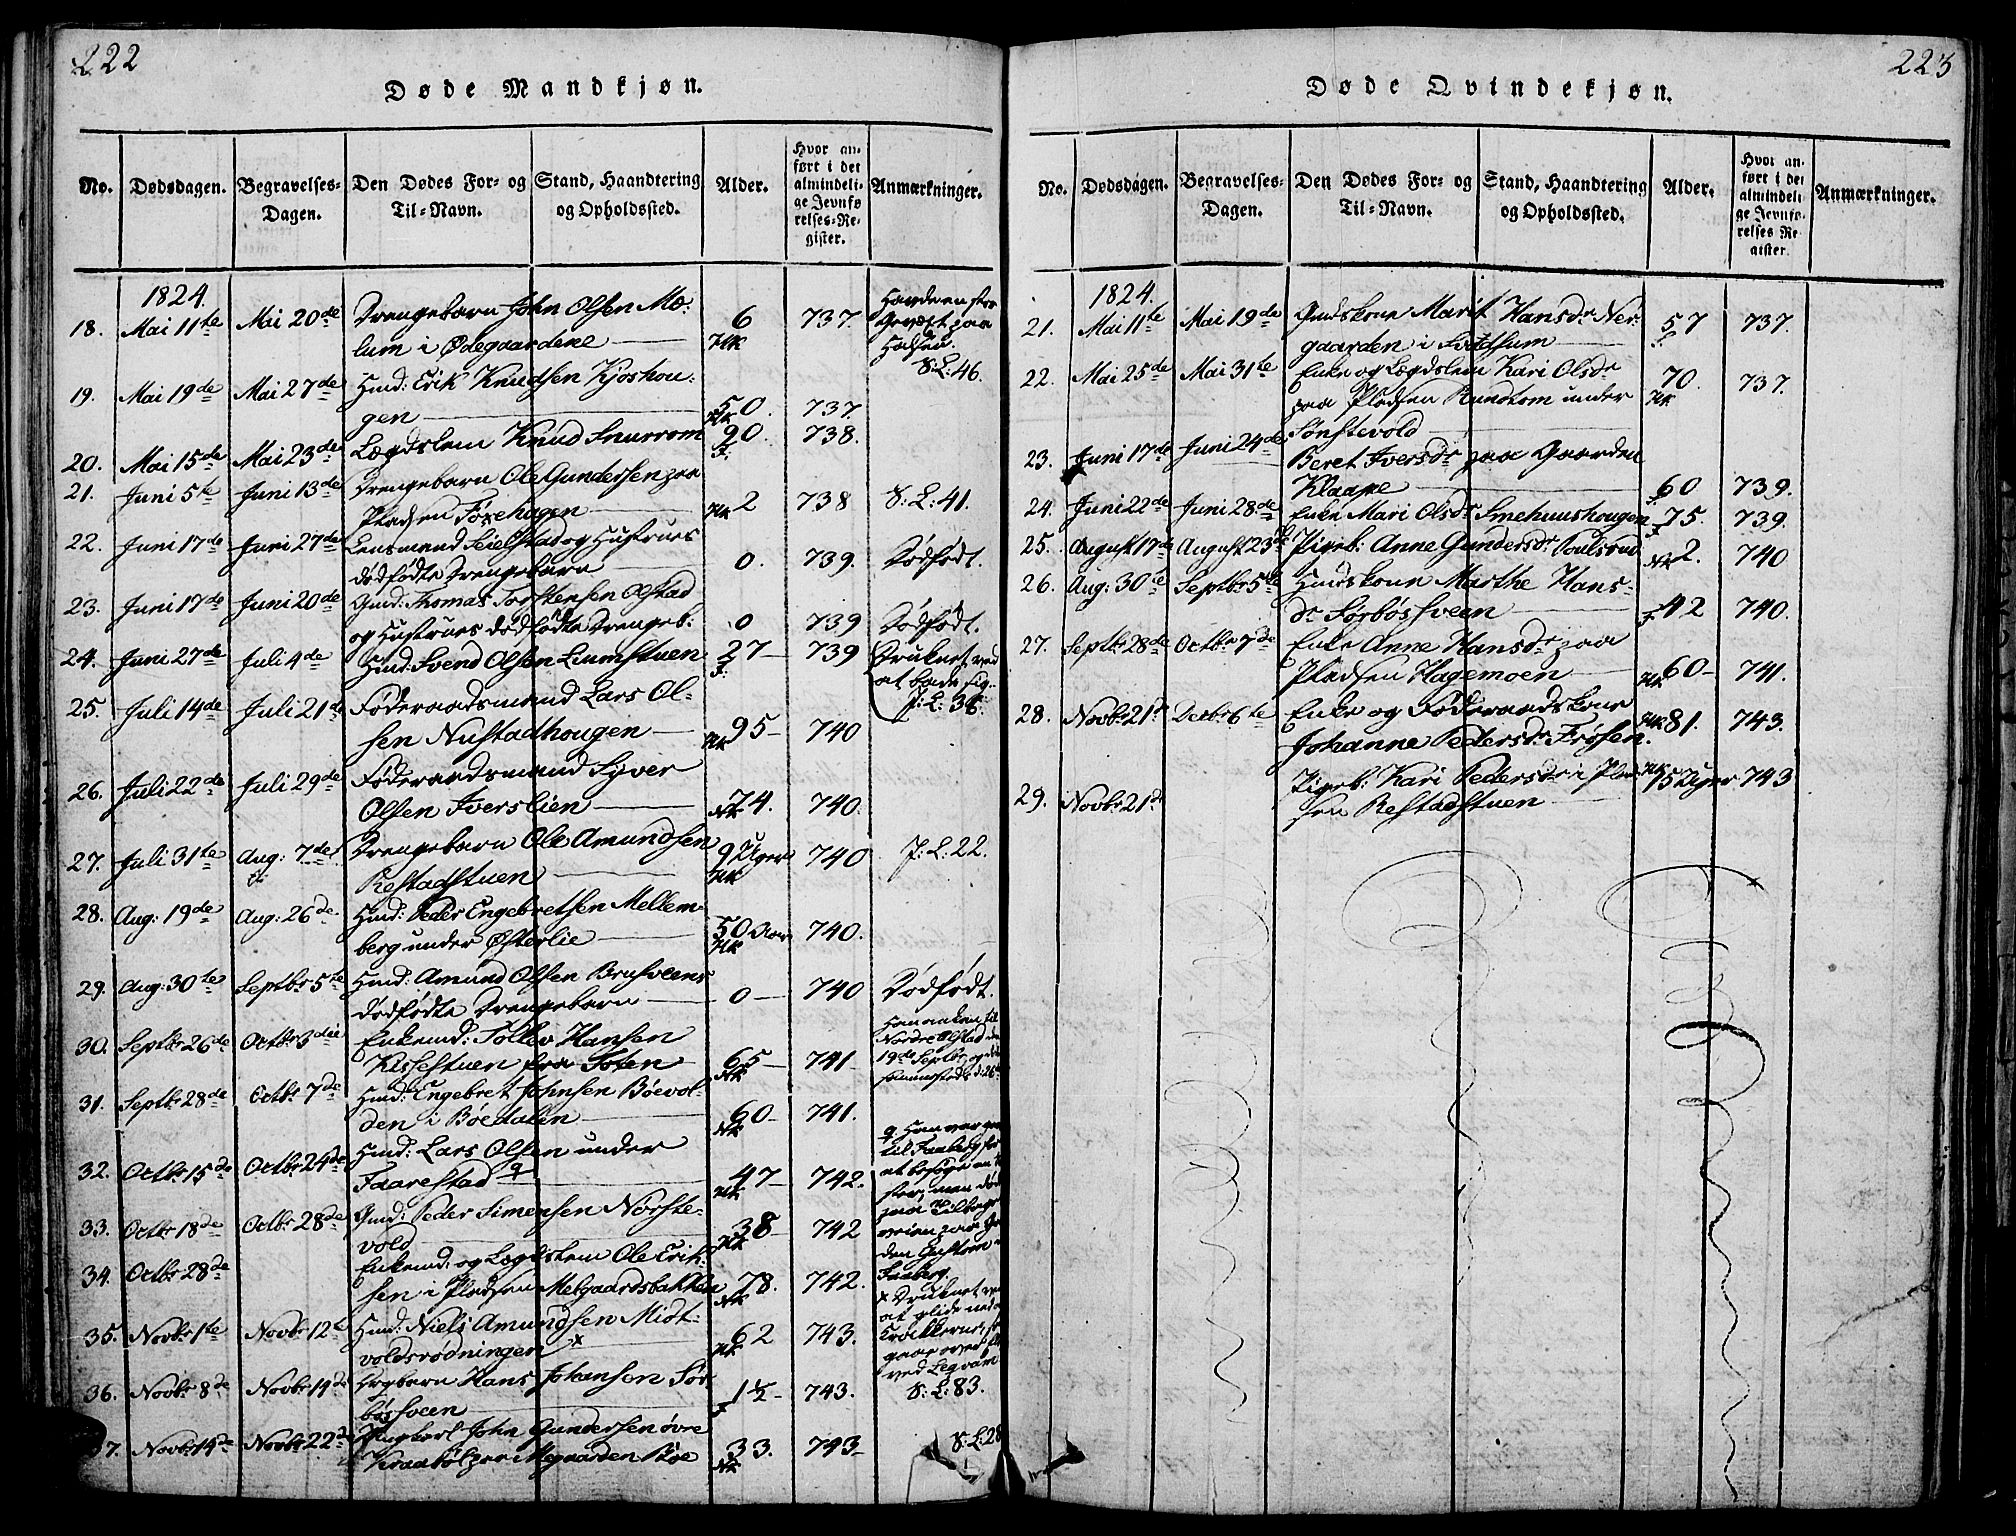 222
Døde Mandkjøn.
No. Dødsdagen. Begravelses-Dagen. Den Dødes For- og Til-Navn. Stand, Haandtering og Opholdssted. Alder. Hvor anført i det almindelige Jevnførelses-Register. Anmærkninger.
1824.
18. Mai 11te Mai 20de Drengebarn John Olsen Mæ-
lum i Ødegaardene 6 737.
S:L:46.
19. Mai 19de Mai 27de Huusmd: Erik Knudsen Kjøshou-
gen 50. 737.
20. Mai 15de Mai 23de Lægdslem Knud Snurrom 90. 738.
21. Juni 5te Juni 13de Drengebarn Ole Gundersen paa
Pladsen Forehagen 2 738 S:L:41.
22. Juni 17de Juni 27de Lensmand Seielstad og Hustrues
dødfødte Drengebarn 0. 739. Dødfødt.
23. Juni 17de Juni 20de Gmd: Thomas Torstensen Olstad
og Hustrues dødfødte Drengeb: 0 739 Dødfødt.
24. Juni 27de Juli 4de Hmd: Svend Olsen Liumstuen 27 739 Druknet ved
at bade sig.
25. Juli 14de Juli 21de Føderaadsmand Lars Ol-
sen Nustadhougen 95 740
26. Juli 22de Juli 29de Føderaadsmand Syver
Olsen Iverslien 74. 740.
27. Juli 31te Aug: 7de Drengebarn Ole Amundsen
Restadstuen 9 Uger 740 P:L:22.
28. Aug: 19de Aug: 26de Hmd: Peder Engebretsen Mellem-
berg under Østerlie 50 Aar 740.
29. Aug: 30te Septbr 5te Hmd: Amund Olsen Brusveens
dødfødte Drengebarn 0 740 Dødfødt.
30. Septbr 26de Octbr 3die Enkemd: Tollev Hansen
Kissestuen fra Toten 65 741
Han ankom til
Nordre Olstad den
19de Septbr og døde
sammesteds d: 26de
31. Septbr 28de Octbr 7de Hmd: Engebret Johnsen Bøevol-
den i Bøedalen 60 741.
32. Octbr 15de Octbr 24de Hmd: Lars Olsen under
Faarestad 47 742.
33. Octbr 18de Octbr 28de Gmd: Peder Simensen Nørste-
vold 38 742
34. Octbr 28de Enkemd: og Lægdslem Ole Erik-
sen i Pladsen Melgaardsbakken 78. 742.
Faaberg.
35. Novbr 1te Novbr 12te Hmd: Niels Amundsen Midt-
voldsrødningen x 62 743.
x Druknet ved
at glide ned
36. Novbr 8de Novbr 19de Hans Johansen Sør-
bøssveen 1½ 743. S:L:83.
37. Novbr 14de Novbr 22de Ungkarl John Gundersen øvre
Kraabøl paa Megaarden Bøe 33. 743 S:L:28
223
Døde Qvindekjøn.
No. Dødsdagen. Begravelses-Dagen. Den Dødes For- og Til-Navn. Stand, Haandtering og Opholdssted. Alder. Hvor anført i det almindelige Jevnførelses Register. Anmærkninger.
1824.
21. Mai 11te Mai 19de Gmdskone Marit Hansdr Ner-
gaarden i Svedsum 57 737.
22. Mai 25de Mai 31te Enke og Lægdslem Kari Olsdr
paa Pladsen Rundtom under
Sønstevold 70. 737.
23. Juni 17de Juni 24de Beret Iversdr paa Gaarden
Klaape 60 739.
24. Juni 22de Juni 28de Enke Mari Olsdr Smehuushougen 75. 739.
25. August 17de August 23de Pigeb: Anne Gundersdr Poulsrud 2. 740
26. Aug: 30te Septbr 5te Huusdskone Marthe Hans-
dr Sørbøssveen 42 740.
27. Septbr 28de Octbr 7de Enke Anne Hansdr paa
Pladsen Hagemoen 60 741.
28. Novbr 21de Decbr 6te Enke og Føderaadskone
Johanne Pedersdr Frøsen. 81. 743.
29. Novbr 21de Pigeb: Kari Pedersdr i Plad-
sen Restadstuen 15 Uger 743